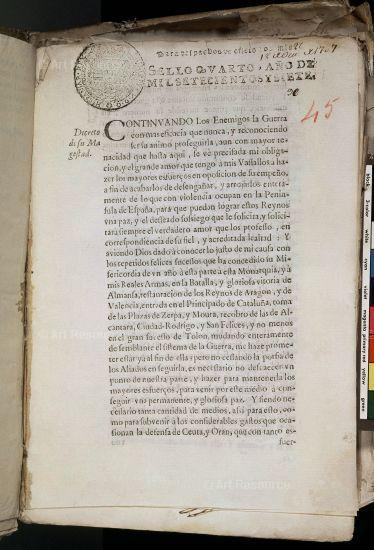 Para despachos de oficio
SELLO QVARTO, AÑO DE
MIL SETECIENTOS Y SIETE.
45
Decreto
de su Ma
gestad.
CONTINVANDO Los Enemigos la Guerra
con mas eficacia que nunca, y reconociendo
ser su animo proseguirla, aun con mayor te-
nacidad que hasta aqui, se vè precisada mi obliga-
cion, y el grande amor que tengo à mis Vassallos à ha-
zer los mayores esfuerços en oposicion de su empeño,
a fin de acabarlos de desengañar, y arrojarlos entera-
mente de lo que con violencia ocupan en la Penin-
sula de España, para que puedan lograr estos Reynos
vna paz, y el deseado sossiego que le solicita, y solici-
tarà siempre el verdadero amor que los professo, en
correspondencia de su fiel, y acreditada lealtad: Y
aviendo Dios dado à conocer lo justo de mi causa con
los repetidos felices sucessos que ha concedido su Mi-
sericordia de vn año à esta parte à esta Monarquia, y à
mis Reales Armas, en la Batalla, y gloriosa vitoria de
Almansa, restauracion de los Reynos de Aragon, y de
Valencia, entrada en el Principado de Cataluña, toma
de las Plazas de Zerpa, y Moura, recobro de las de Al-
cantara, Ciudad-Rodrigo, y San Felices, y no menos
en el gran sucesso de Tolon, mudando enteramente
de semblante el sistema de la Guerra, me haze prome-
ter estàr yà al fin de ella; pero no cessando la porfia de
los Aliados en seguirla, es necessario no descaecer vn
punto de nuestra parte, y hazer para mantenerla los
mayores esfuerços, para venir por este medio à con-
seguir vna permanente, y gloriosa paz. Y siendo ne-
cessario tanta cantidad de medios, assi para esto, co-
mo para subvenir à los considerables gastos que oca-
sionan la defensa de Ceuta, y Oran, que con tanto es-
fuer-
© Art Resource
© Art Resource